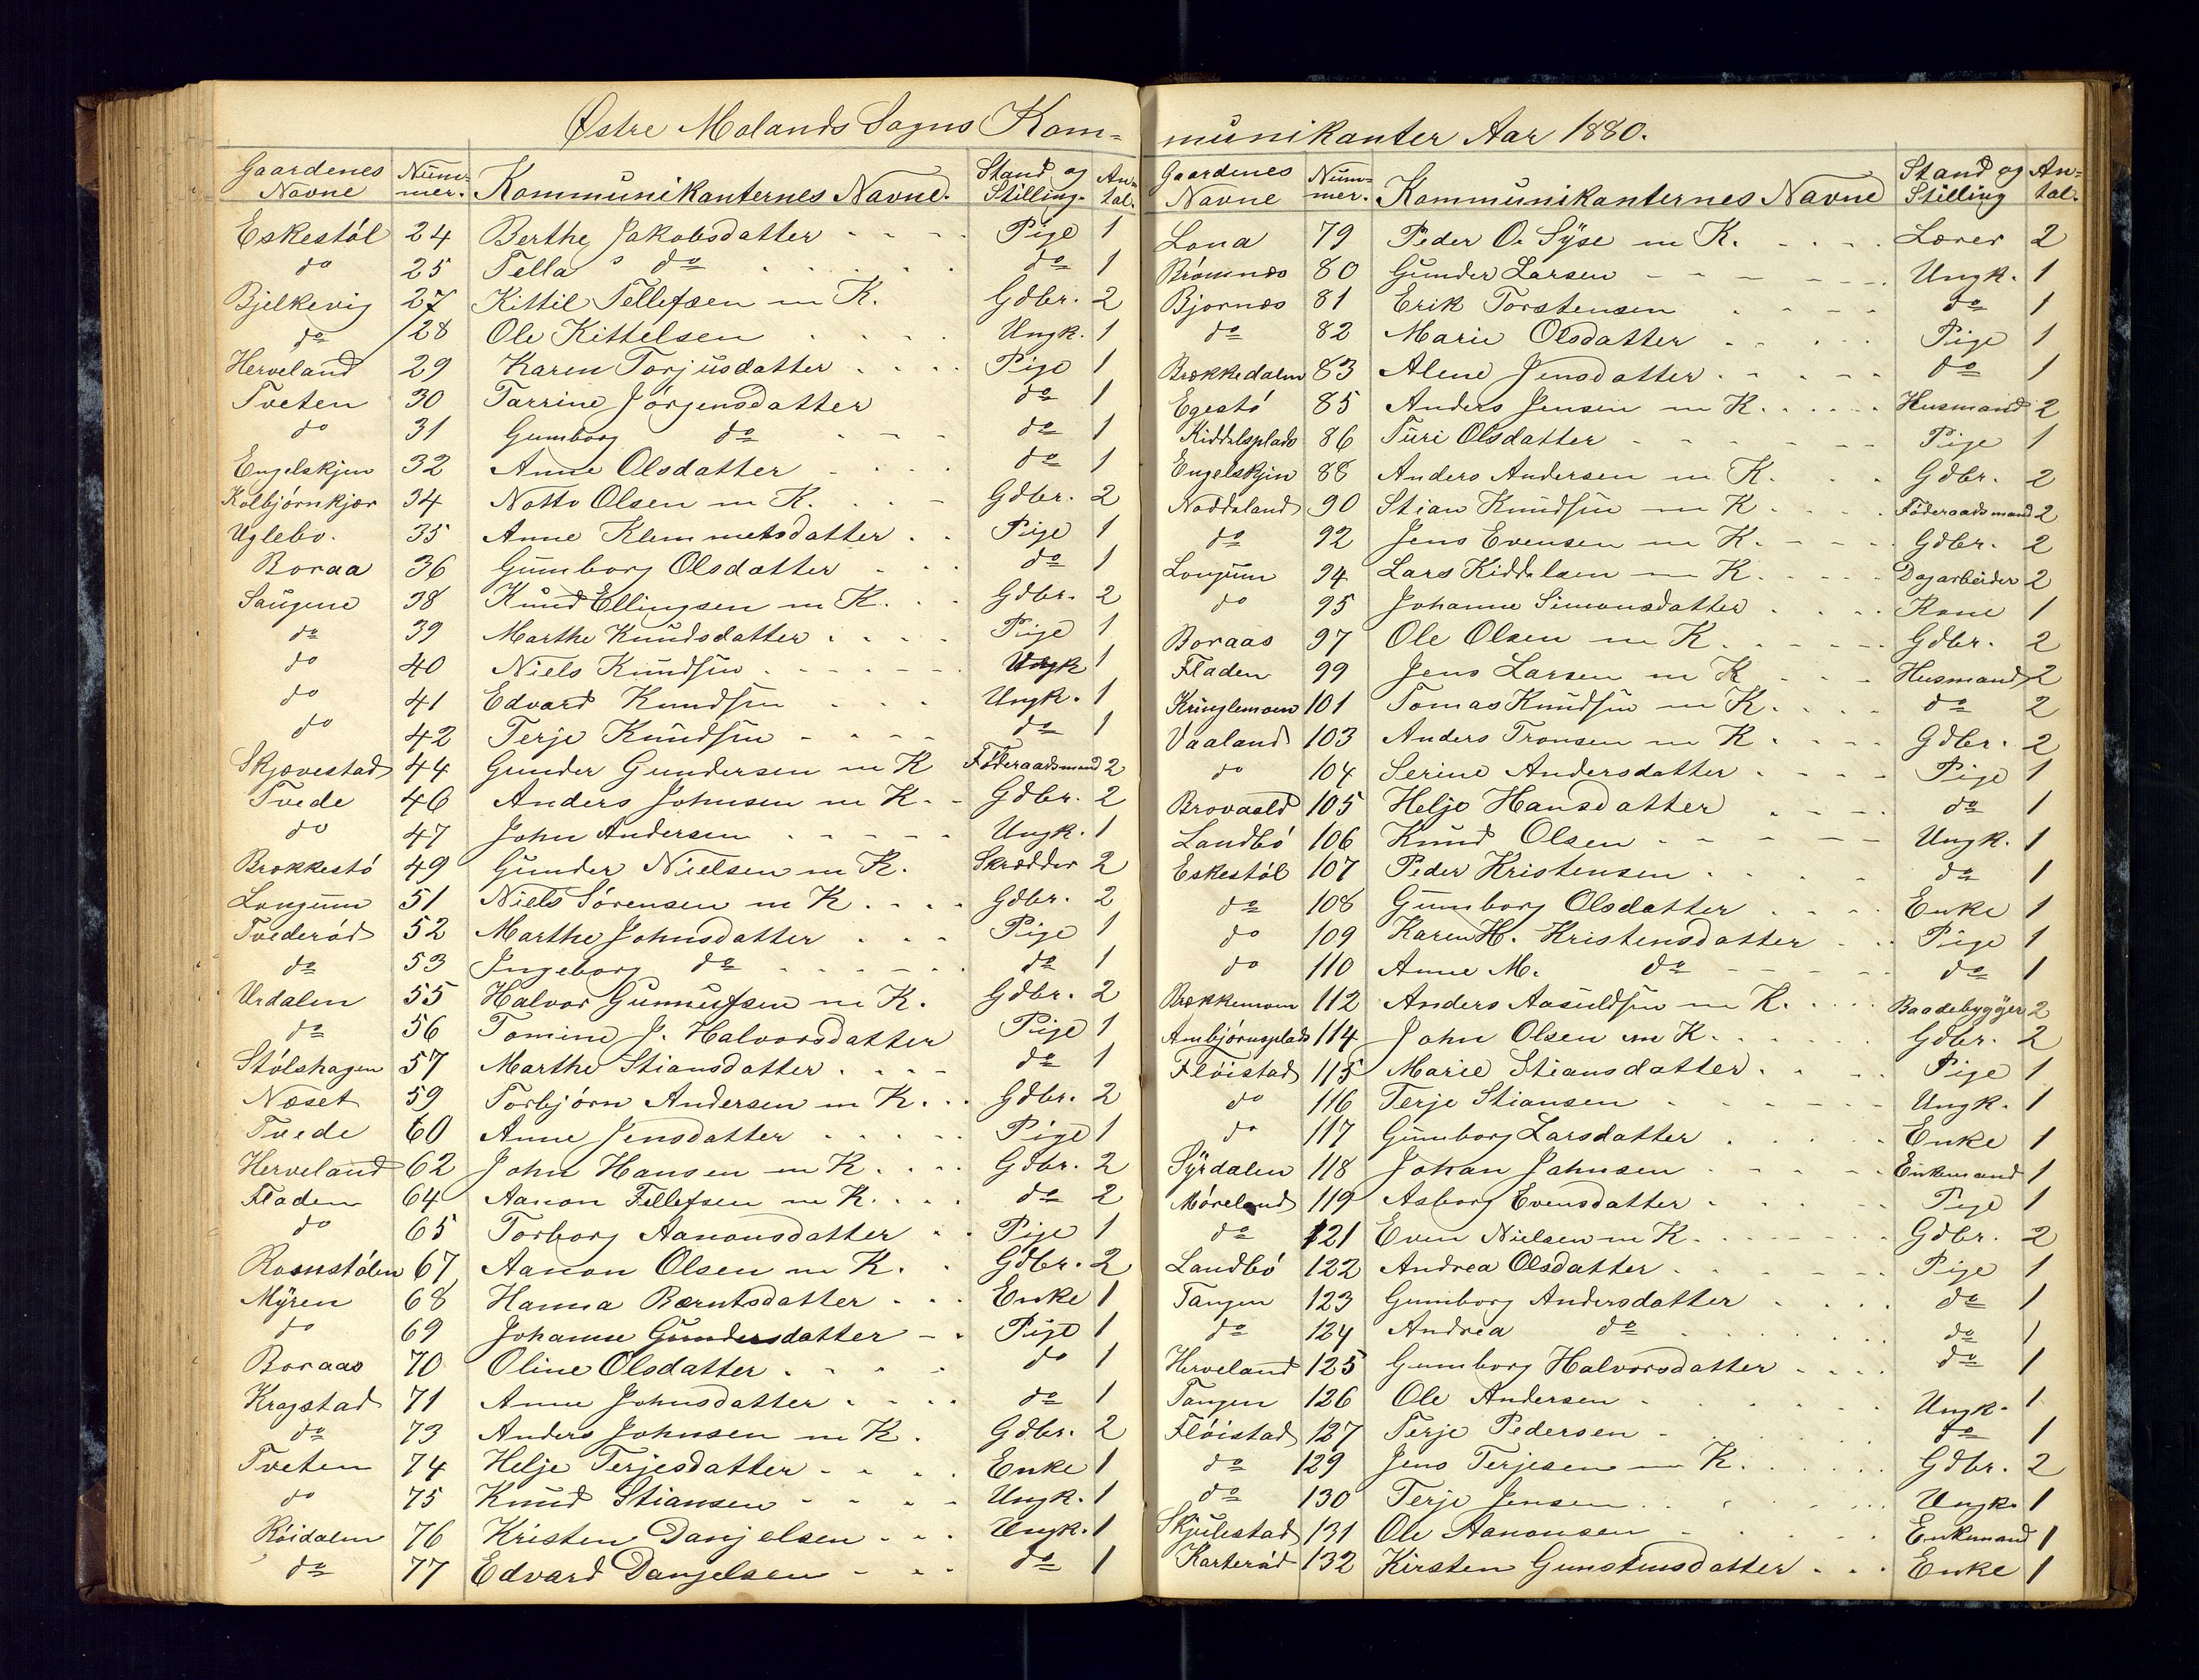 Østre Molands Sogns Kom=
Gaardenes Navne Num=mer. Kommunikanternes Navne. Stand og Stilling. An=tal.
Eskestöl 24 Berthe Jakobsdatter Pige 1
do 25 Tella do do 1
Bjelkevig 27 Kittil Tellefsen m K. Gdbr. 2
do 28 Ole Kittelsen Ungk. 1
Herveland 29 Karen Torjusdatter Pige 1
Tveten 30 Tarrine Jörgensdatter do 1
do 31 Gumborg do do 1
Engelskjen 32 Anne Olsdatter do 1
Kolbjörnkjær 34 Notto Olsen m K. Gdbr. 2
Uglebo. 35 Anne Klemmetsdatter Pige 1
Boraa 36 Gumborg Olsdatter do 1
Saugene 38 Knud Ellingsen m K. Gdbr. 2
do 39 Marthe Knudsdatter Pige 1
do 40 Niels Knudsen Ungk 1
do 41 Edvard Knudsen Ungk. 1
do 42 Terje Knudsen do 1
Skjævestad 44 Gunder Gundersen m K Föderaadsmand 2
Tvede 46 Anders Johnsen m K. Gdbr. 2
do 47 John Andersen Ungk. 1
Brækkestö 49 Gunder Nielsen m K. Skrædder 2
Longum 51 Niels Sörensen m K Gdbr. 2
Tvederöd 52 Marthe Johnsdatter Pige 1
do 53 Ingeborg do do 1
Urdalen 55 Halvor Gunnufsen m K. Gdbr. 2
do 56 Tomine J. Halvorsdatter Pige 1
Stölshagen 57 Marthe Stiansdatter do 1
Næset 59 Torbjörn Andersen m K. Gdbr. 2
Tvede 60 Anne Jensdatter Pige 1
Herveland 62 John Hansen m K. Gdbr. 2
Fladen 64 Aanon Tellefsen m K. do 2
do 65 Torborg Aanonsdatter Pige 1
Rosnstölen 67 Aanon Olsen m K. Gdbr. 2
Myren 68 Hanna Bærntsdatter Enke 1
do 69 Johanne Gundersdatter Pige 1
Boraas 70 Oline Olsdatter do 1
Kragstad 71 Anne Johnsdatter do 1
do 73 Anders Johnsen m K. Gdbr. 2
Tveten 74 Helje Terjesdatter Enke 1
do 75 Knud Stiansen Ungk. 1
Röidalen 76 Kristen Danjelsen Ungk. 1
do 77 Edvard Danjelsen do 1
munikanter Aar 1880.
Gaardenes Navne Num=mer. Kommunikanternes Navne Stand og Stilling An=tal.
Lona 79 Peder O. Syse m K. Lærer 2
Brömnæs 80 Gunder Larsen Ungk. 1
Bjornæs 81 Erik Torstensen do 1
do 82 Marie Olsdatter Pige 1
Brækkedalen 83 Alene Jensdatter do 1
Egestö 85 Anders Jensen m K. Husmand 2
Kiddelsplads 86 Turi Olsdatter Pige 1
Engelskjen 88 Anders Andersen m K. Gdbr. 2
Noddeland 90 Stian Knudsen m K Föderaadsmand 2
do 92 Jens Evensen m K. Gdbr. 2
Longum 94 Lars Kiddelsen m K. Dagarbeider 2
do 95 Johanne Simonsdatter Kone 1
Boraas 97 Ole Olsen m K. Gdbr. 2
Fladen 99 Jens Larsen m K Husmand 2
Kringlemoen 101 Tomas Knudsen m K. do 2
Vaaland 103 Anders Tronsen m K Gdbr. 2
do 104 Serine Andersdatter Pige 1
Brovold 105 Helje Hansdatter do 1
Landbö 106 Knud Olsen Ungk. 1
Eskestöl 107 Peder Kristensen do 1
do 108 Gumborg Olsdatter Enke 1
do 109 Karen H. Kristensdatter Pige 1
do 110 Anne M. do do 1
Brækkemoen 112 Anders Aasuldsen m K. Baadebygger 2
Ambjörnsplads 114 John Olsen m K. Gdbr. 2
Flöistad 115 Marie Stiansdatter Pige 1
do 116 Terje Stiansen Ungk. 1
do 117 Gumborg Larsdatter Enke 1
Syrdalen 118 Johan Johnsen Enkemand 1
Möreland 119 Asborg Evensdatter Pige 1
do 121 Even Nielsen m K. Gdbr. 2
Landbö 122 Andrea Olsdatter Pige 1
Tangen 123 Gumborg Andersdatter do 1
do 124 Andrea do do 1
Herveland 125 Gumborg Halvorsdatter do 1
Tangen 126 Ole Andersen Ungk. 1
Flöistad 127 Terje Pedersen do 1
do 129 Jens Terjesen m K. Gdbr. 2
do 130 Terje Jensen Ungk. 1
Skjulestad 131 Ole Aanonsen Enkemand 1
Karteröd 132 Kirsten Gunstensdatter Enke 1